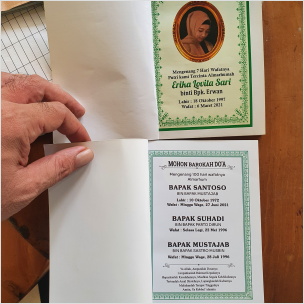 Mengenang 7 Hari Wafatnya
Putri kami Tercinta Almarhumah
Erika Lovita Sari
binti Bpk. Erwan
Lahir : 18 Oktober 1997
Wafat : 6 Maret 2021
MOHON BAROKAH DO'A
Mengenang 100 hari wafatnya
Almarhum
BAPAK SANTOSO
BIN BAPAK MUSTAJAB
Lahir : 10 Oktober 1972
Wafat : Minggu Wage, 27 Juni 2021
BAPAK SUHADI
BIN BAPAK PARTO DIRUN
Wafat : Selasa Legi, 23 Mei 1996
BAPAK MUSTAJAB
BIN BAPAK SASTRO MUSKIN
Wafat : Minggu Wage, 28 Juli 1996